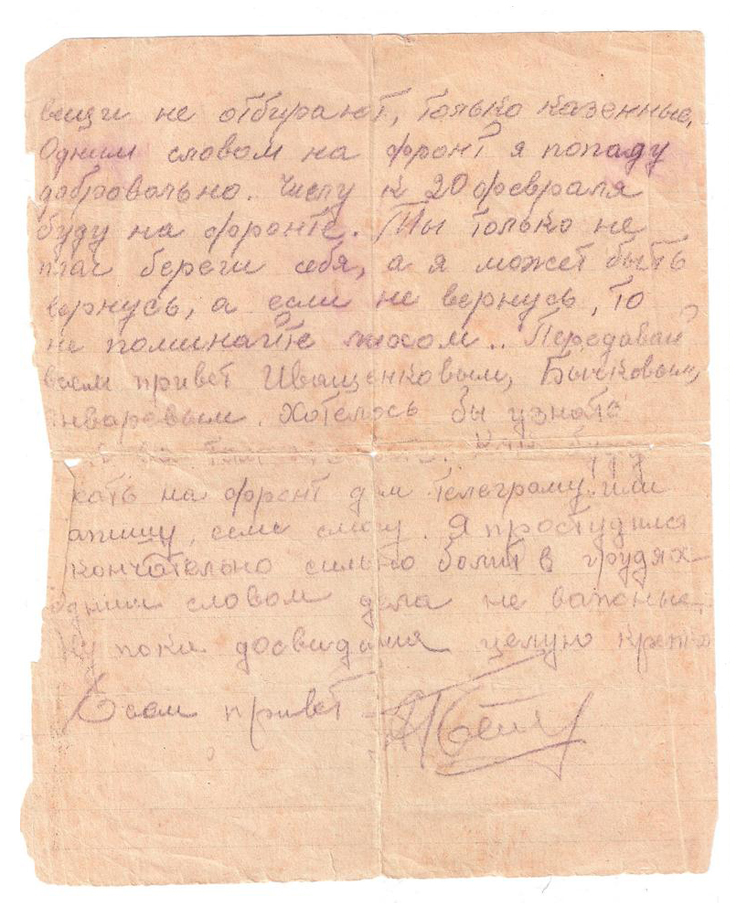 вещи не отбирают, только казенные.
Одним словом на фронт я попаду
добровольно. Числу к 20 февраля
буду на фронте. Ты только не
плач береги себя, а я может быть
вернусь, а если не вернусь, то
не поминайте лихом.. Передавай
всем привет Иващенковым, Бычковым,
Январевым. Хотелось бы узнать
там буду
хать на фронт дам телеграму или
апишу, если смогу. Я простудился
кончательно сильно болит в грудях
одним словом дела не важные.
Ну пока досвидания целую крепко
Всем привет